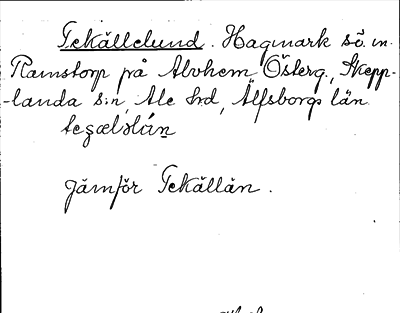 Tekällelund. Hagmark sö. in.
Ramstorp på Alvhem Österg., Skepp-
-landa s:n, Ale hd, Älfsborgs län.
Jämför Tekällän.